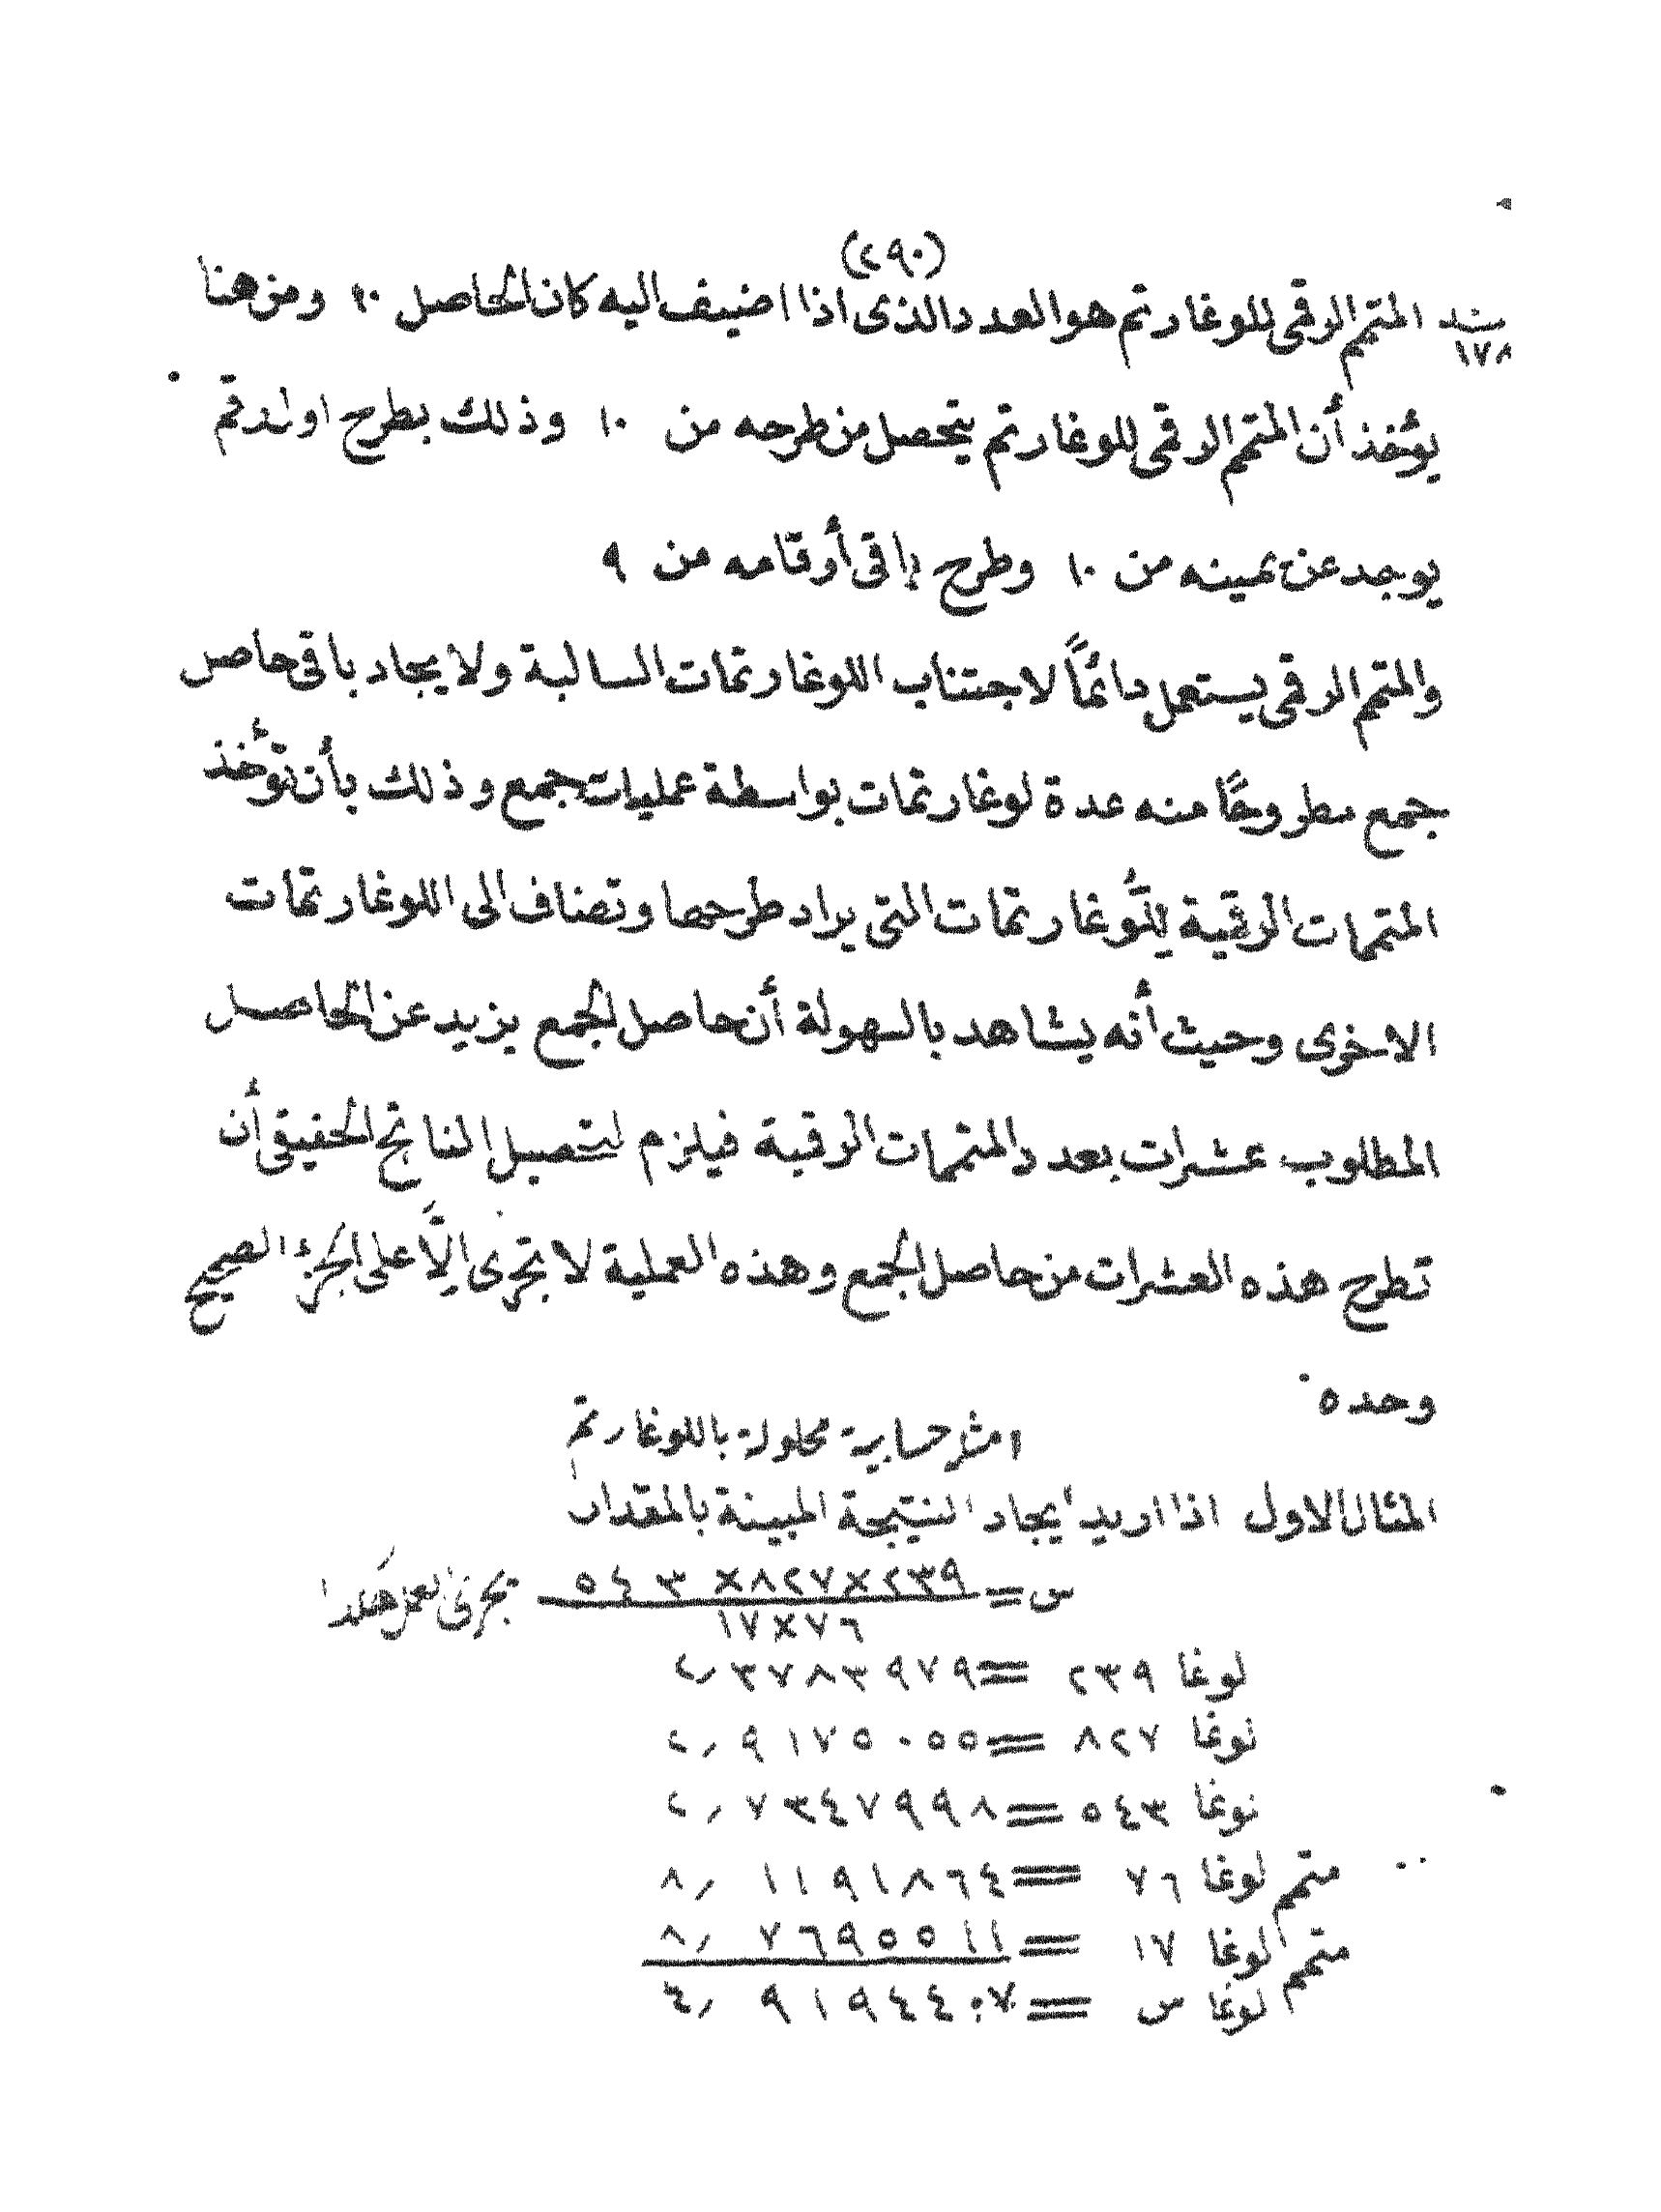 (٢٩٠)
بند ١٧٨ المتمم الرقمى للوغارتم هو العدد الذى اذا اضيف اليه كان الحاصل ١٠ ومن هنا
يؤخذ أن المتمم الرقمى للوغارتم يتحصل من طرحه من ١٠ وذلك بطرح اول رقم
يوجد عن يمينه من ١٠ وطرح باقى أرقامه من ٩
والمتمم الرقمى يستعمل دائماً لاجتناب اللوغارتمات السالبة ولايجاد باقى حاصل
جمع مطروحًا منه عدة لوغارتمات بواسطة عمليات جمع وذلك بأن تؤخذ
المتممات الرقمية للوغارتمات التى يراد طرحها وتضاف الى اللوغارتمات
الاخرى وحيث أنه يشاهد بالسهولة أن حاصل الجمع يزيد عن الحاصل
المطلوب عشرات بعدد المتممات الرقمية فيلزم لتحصيل الناتج الحقيقى أن
تطرح هذه العشرات من حاصل الجمع وهذه العملية لا تجرى إلاَّ على الجزء الصحيح
وحده
امثله حسابية محلولة باللوغارتم
المثال الاول اذا اريد ايجاد النتيجة المبينة بالمقدار
س = ٢٣٩×٨٢٧×٥٤٣ تجرى العمل هكذا
١٧×٧٦
لوغا ٢٣٩ = ٢,٣٧٨٣٩٧٩
لوغا ٨٢٧ = ٢,٩١٧٥٠٥٥
لوغا ٥٤٣ = ٢,٧٣٤٧٩٩٨
متمم لوغا ٧٦ = ٨,١١٩١٨٦٤
متمم لوغا ١٧ = ٨,٧٦٩٥٥١١
لوغا س = ٤,٩١٩٤٤٠٧